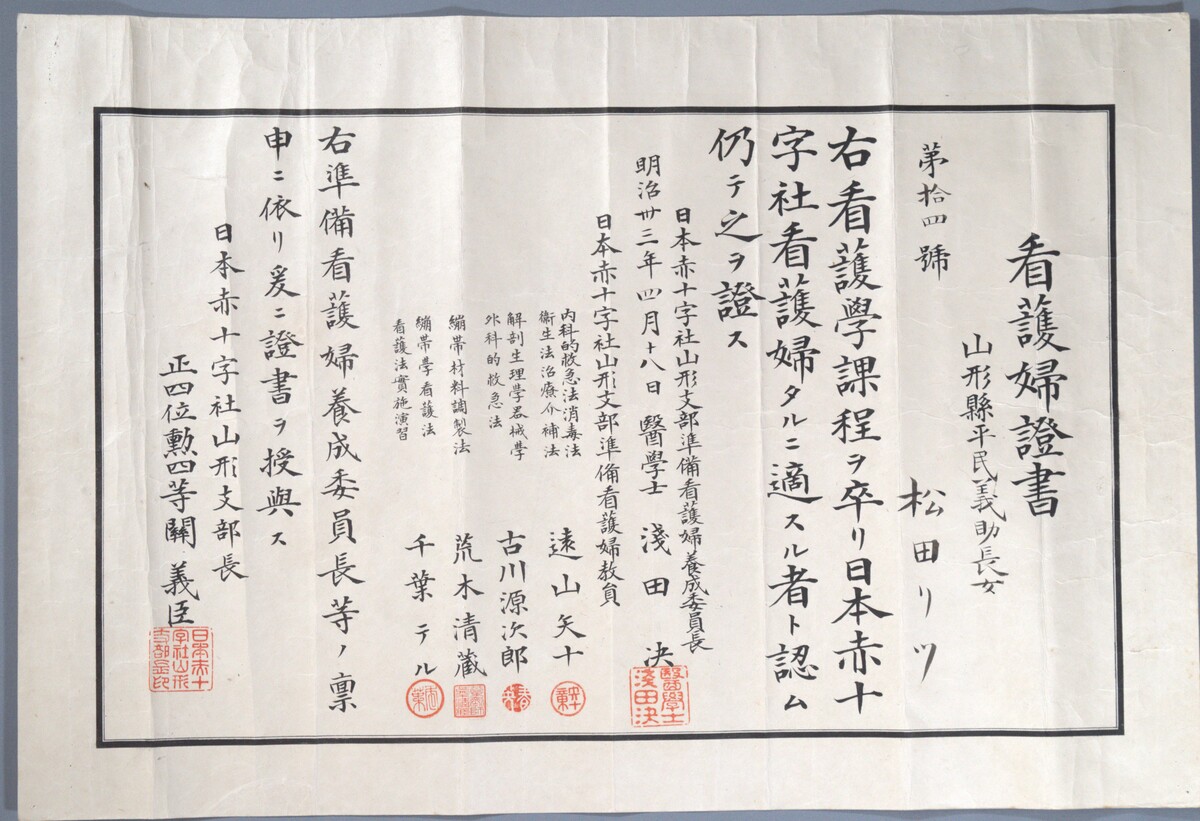 看護婦證書
山形縣平民義助長女
第拾四號
松田リツ
右看護學課程ヲ卒リ日本赤十
字社看護婦タルニ適スル者ト認ム
仍テ之ヲ證ス
日本赤十字社山形支部準備看護婦養成委員長
明治卅三年四月十八日 醫學士 淺田決
醫學士
淺田决
日本赤十字社山形支部準備看護婦教員
内科的救急法消毒法
衞生法治療介補法
遠山矢十
解剖生理學器械學
外科的救急法
古川源次郎
繃帶材料調製法
荒木清藏
繃帶學看護法
看護法實施演習
千葉テル
右準備看護婦養成委員長等ノ稟
申ニ依リ爰ニ證書ヲ授與ス
日本赤十字社山形支部長
正四位勲四等關義臣
日本赤十
字社山形
支部長印